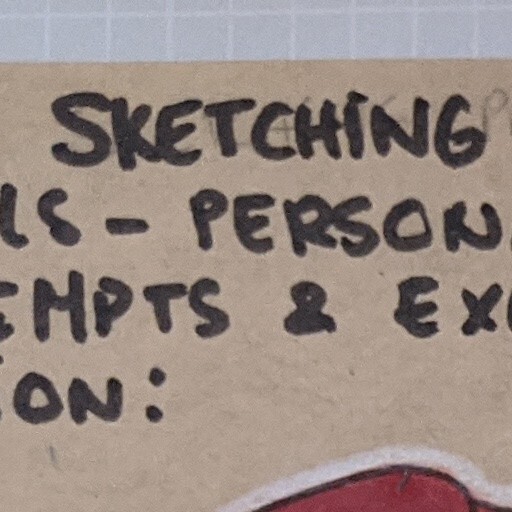 SKETCHING
LS - PERSON
EMPTS & EX
ION: